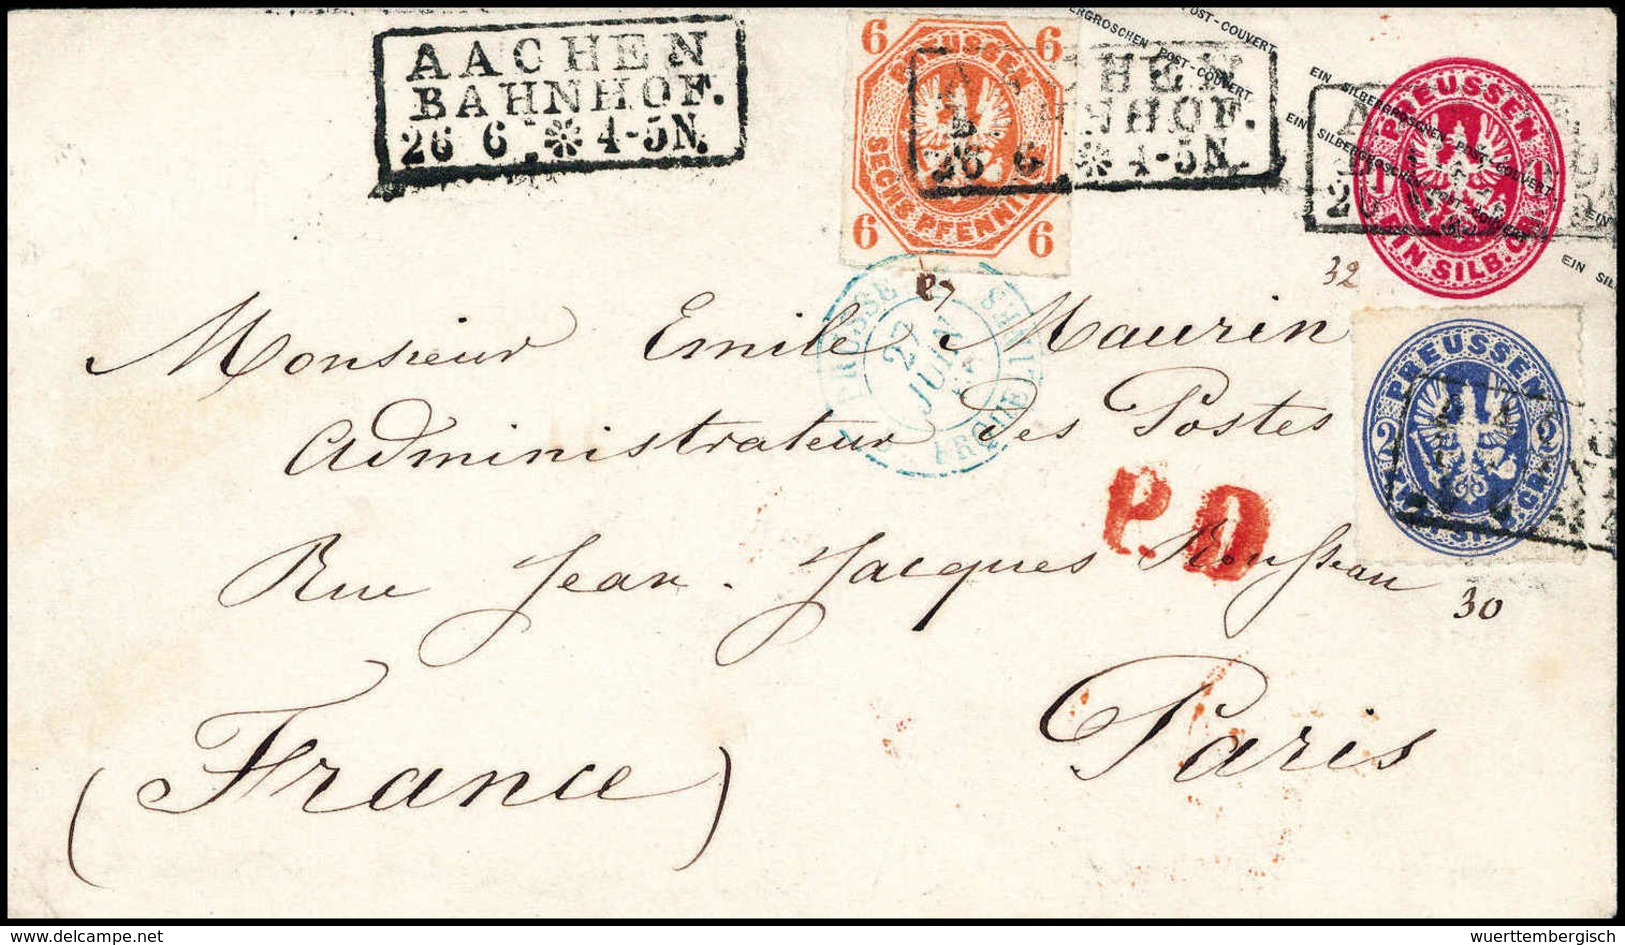 AACHEN
BAHNHOF.
26 6 * 4-5N.
6 6
PREUSSEN
SECHS PFENNIGE
6 6
AACHEN
BAHNHOF.
26 6 * 4-5N.
SILBERGROSCHEN POST-COUVERT.
POST-COUVERT
EIN SILBERGROSCHEN POST-COUVERT
EIN SILBERGROSCHEN POST-COUVERT
EIN
EIN SIL
PREUSSEN
1 1
EIN SILB.GR.
32
PRUSSE
27
JUIN
ERQUELINES
Monsieur Emile Maurin
PREUSSEN
2 2
ZWEI SILB.GR.
Administrateur des Postes
P.D
Rue Jean-Jacques Rousseau
30
Paris
(France)
delcampe.net
wuerttembergisch